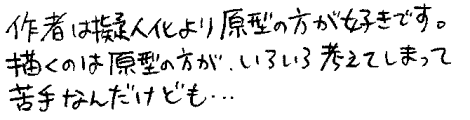 作者は擬人化より原型の方が好きです。
描くのは原型の方が、いろいろ考えてしまって
苦手なんだけども…